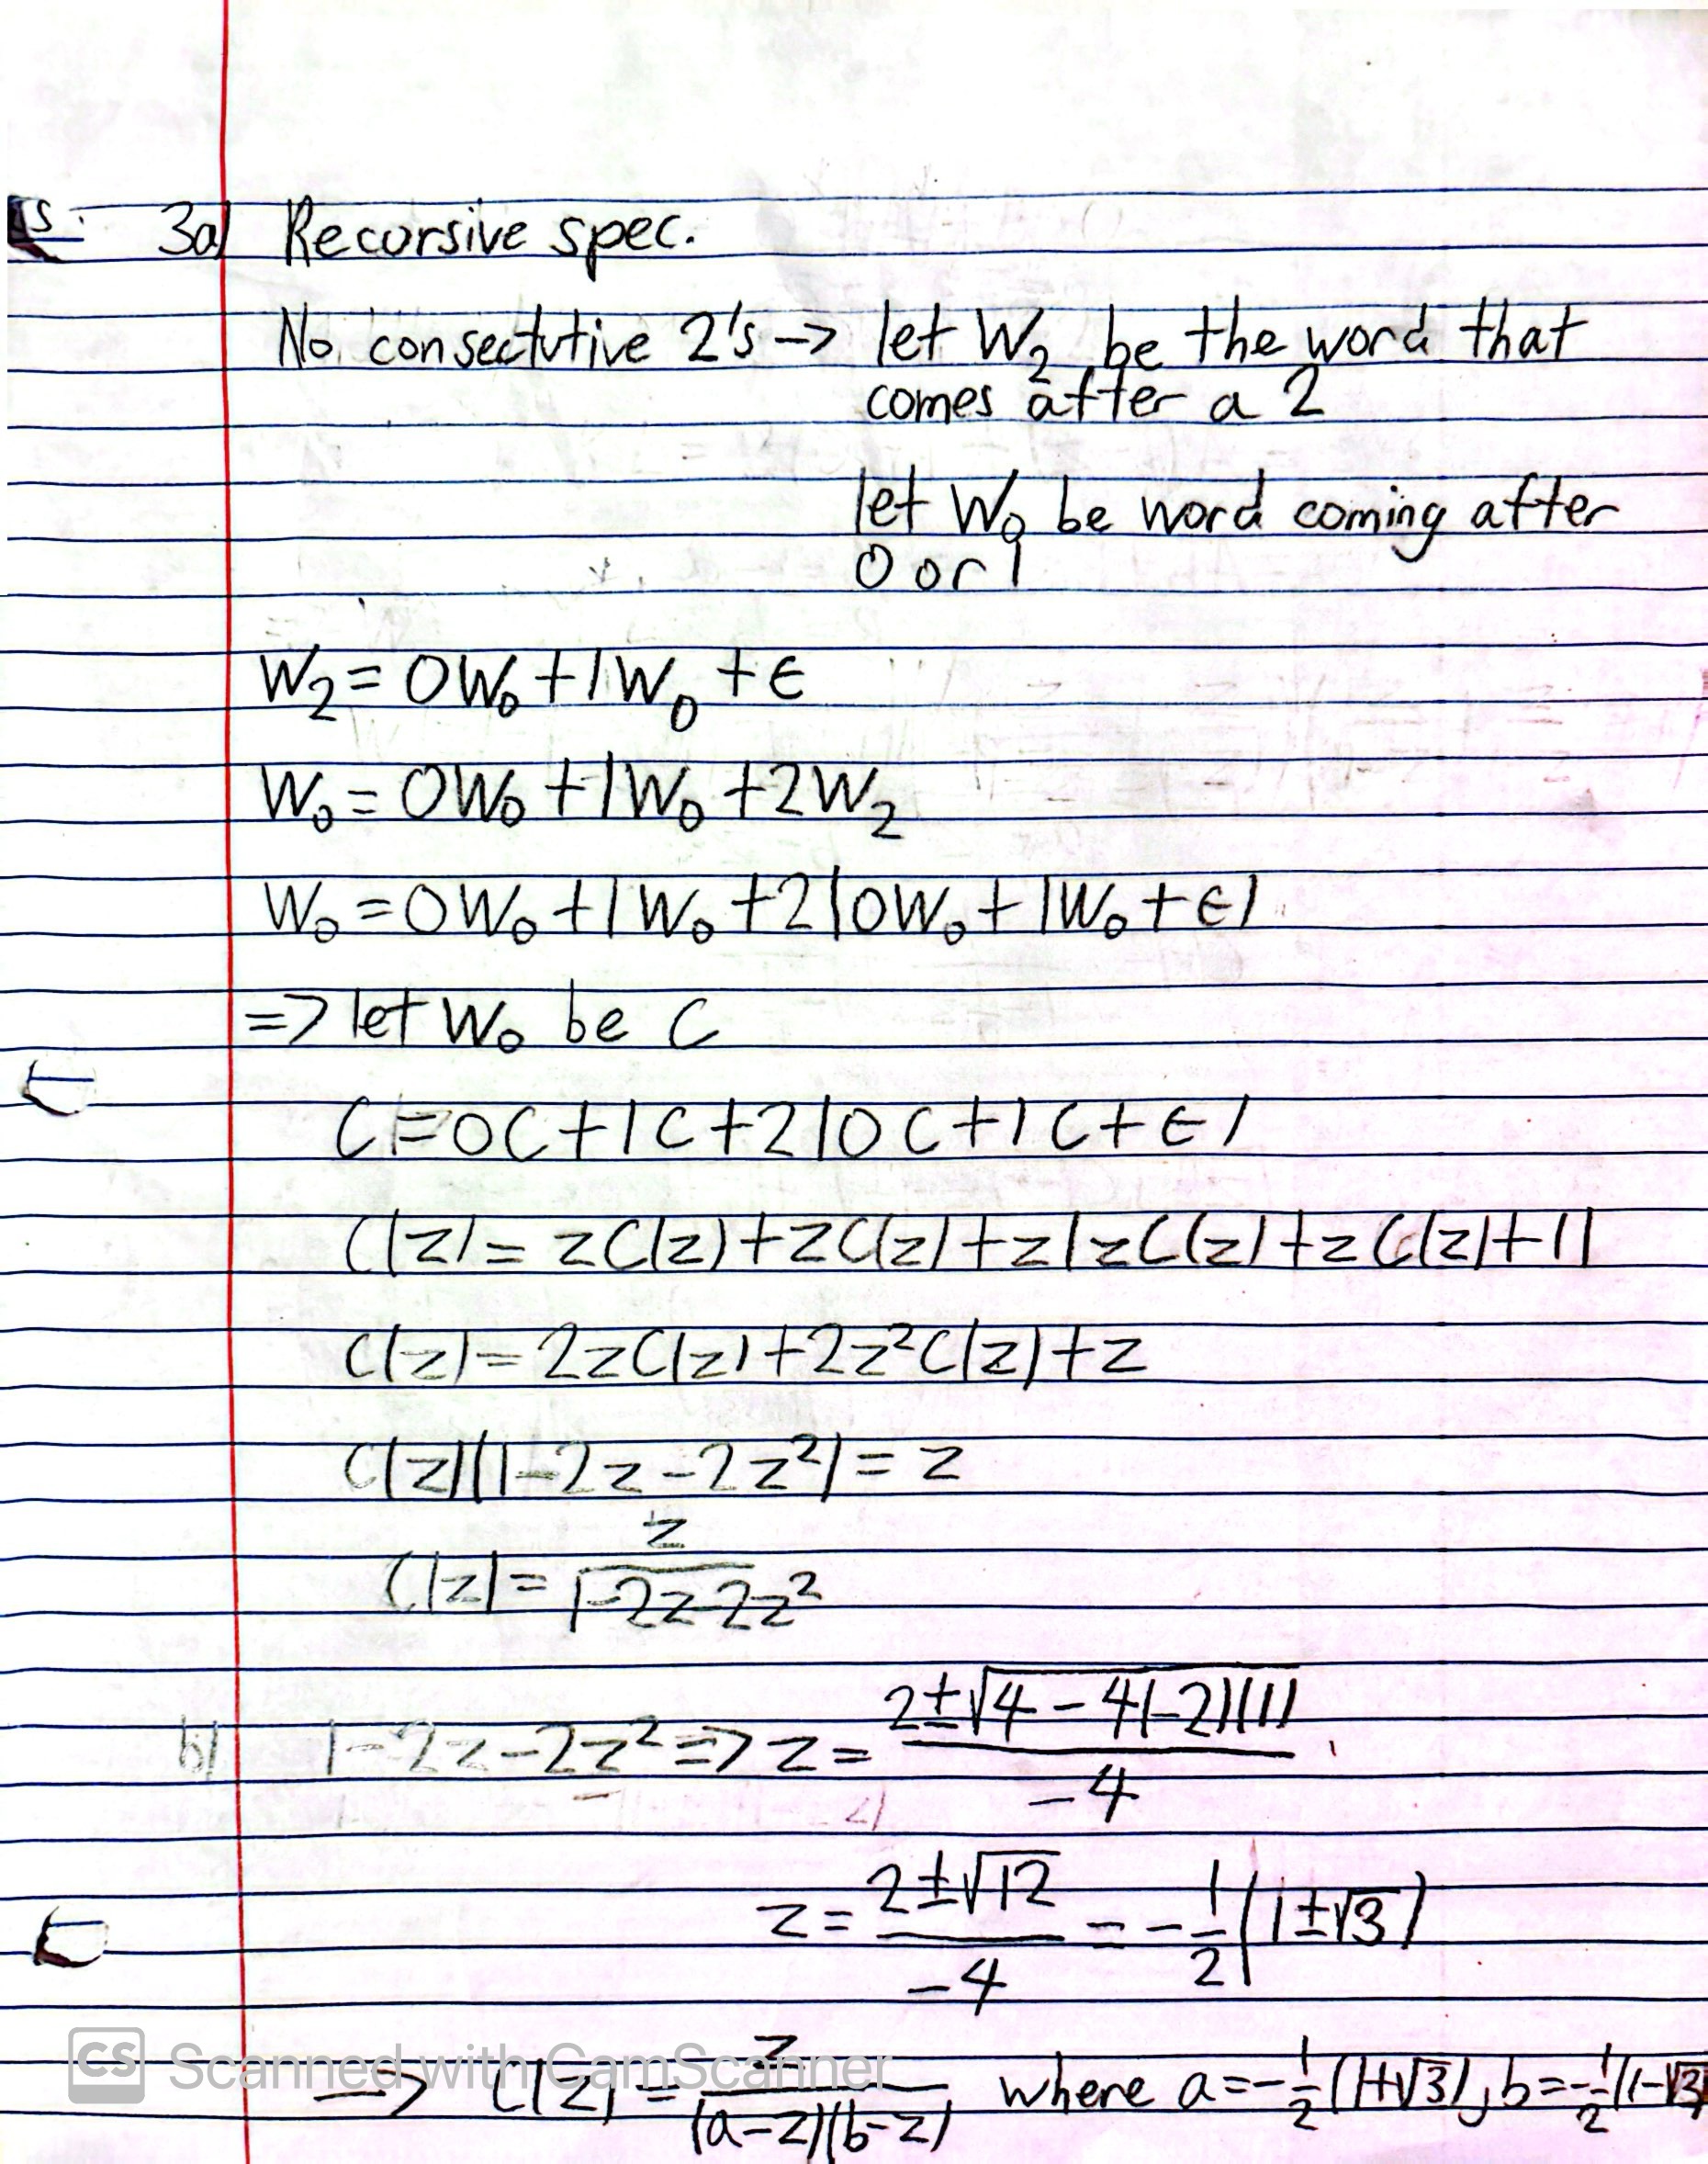 s.
3a) Recursive spec.
No consectutive 2's -> let W₂ be the word that
comes after a 2
let W₀ be word coming after
0 or 1
W₂ = 0W₀ + 1W₀ + ϵ
W₀ = 0W₀ + 1W₀ + 2W₂
W₀ = 0W₀ + 1W₀ + 2(0W₀ + 1W₀ + ϵ)
=> let W₀ be C
C = 0C + 1C + 2(0C + 1C + ϵ)
C(z) = zC(z) + zC(z) + z(zC(z) + zC(z) + 1)
C(z) = 2zC(z) + 2z²C(z) + z
C(z)(1-2z-2z²) = z
C(z) = z/(1-2z-2z²)
b) 1-2z-2z² => z = (2±√(4-4(-2)(1)))/-4
z = (2±√12)/-4 = -1/2(1±√3)
=> C(z) = z/((a-z)(b-z)) where a = -1/2(1+√3), b = -1/2(1-√3)
CS Scanned with CamScanner